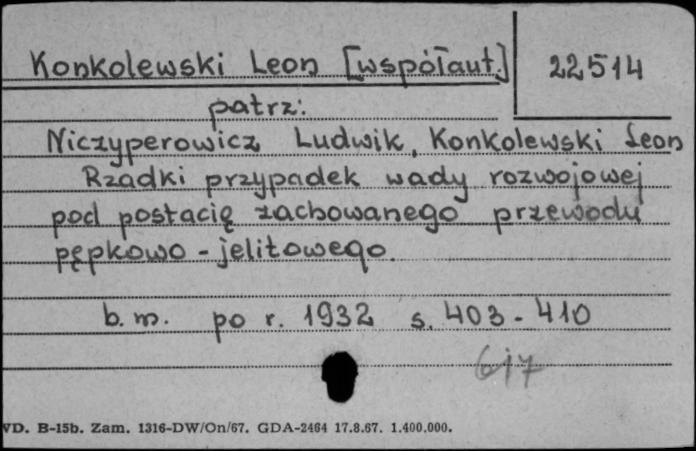 Konkolewski Leon [współaut.] 22514
patrz:
Niczyperowicz Ludwik, Konkolewski Leon
Rzadki przypadek wady rozwojowej
pod postacią zachowanego przewodu
pępkowo - jelitowego.
b. m. po r. 1932 s. 403 - 410
617
VD. B-15b. Zam. 1316-DW/On/67. GDA-2464 17.8.67. 1.400.000.